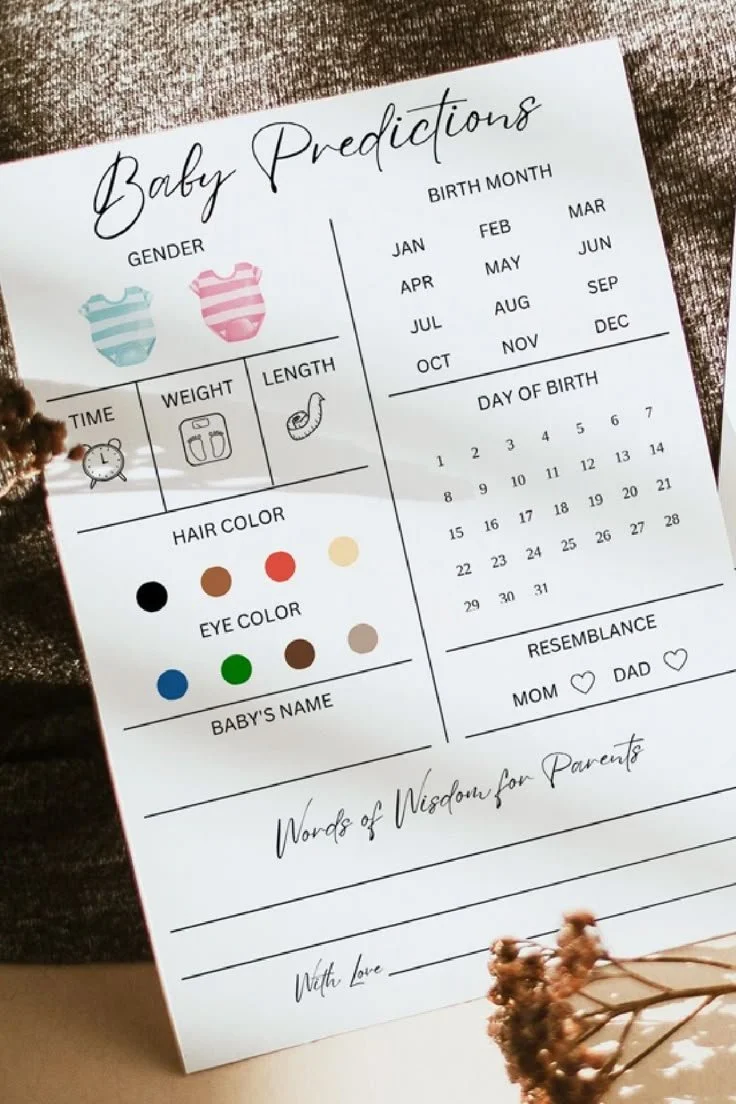 Baby Predictions
GENDER
TIME WEIGHT LENGTH
HAIR COLOR
EYE COLOR
BABY'S NAME
BIRTH MONTH
JAN FEB MAR
APR MAY JUN
JUL AUG SEP
OCT NOV DEC
DAY OF BIRTH
1 2 3 4 5 6 7
8 9 10 11 12 13 14
15 16 17 18 19 20 21
22 23 24 25 26 27 28
29 30 31
RESEMBLANCE
MOM DAD
Words of Wisdom for Parents
With Love